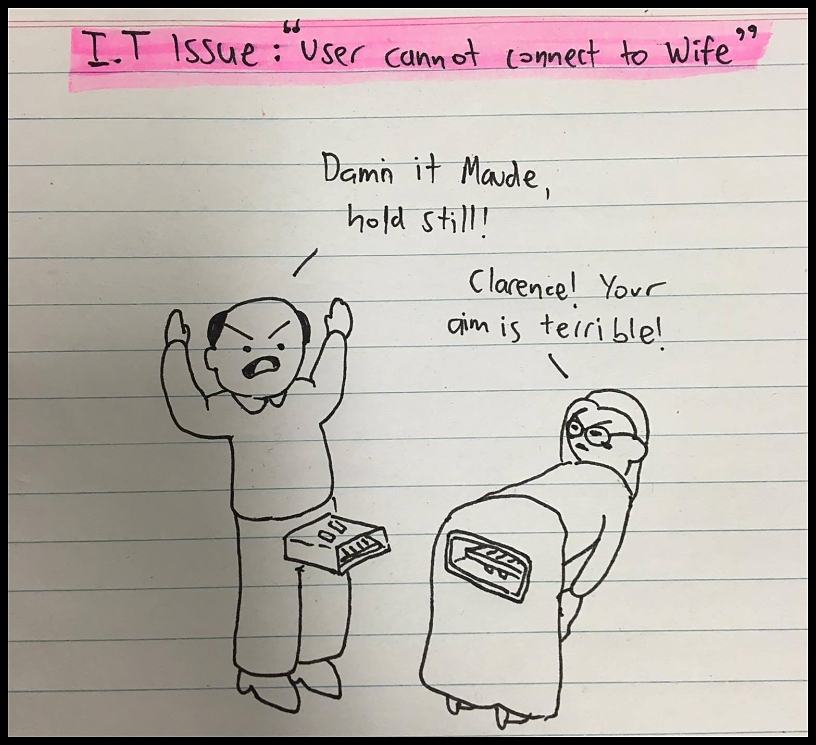 I.T Issue: "User cannot connect to Wife"
Damn it Maude,
hold still!
Clarence! Your
aim is terrible!